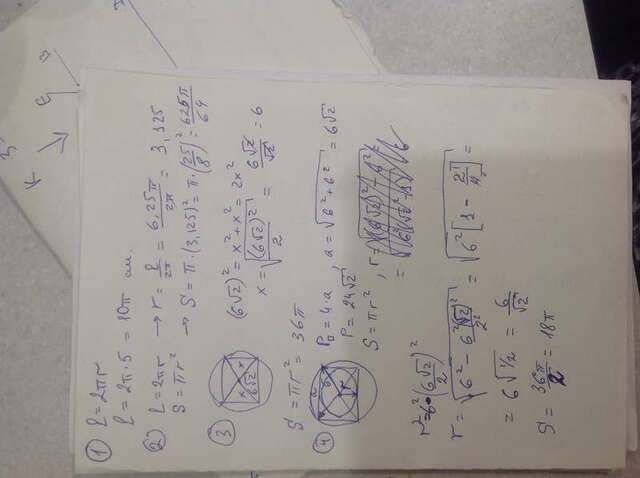 ① ℓ = 2πr
ℓ = 2π·5 = 10π см.
② ℓ = 2πr → r = ℓ/2π = 6,25π/2π = 3,125
S = πr² → S = π·(3,125)² = π·(25/8)² = 625π/64
③ (6√2)² = x² + x² = 2x²
x x 6√2
x = √((6√2)²/2) = 6√2/√2 = 6
S = πr² = 36π
④ P□ = 4·a, a = √(6²+6²) = 6√2
a 6 r
P = 24√2
S = πr²,
r² = 6² (6√2/2)²
r = √(6² - 6²(√2)²/2²) = √(6²[1 - 2/4]) =
= 6√1/2 = 6/√2
S = 36π/2 = 18π